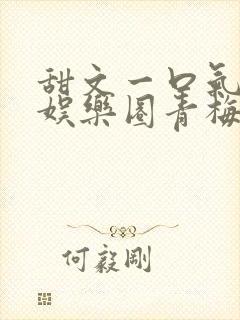 甜文一口氣
娛樂圈青梅
何毅剛